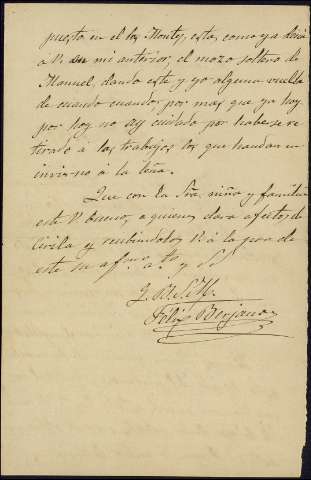 puesto en el los Montes, esta, como ya decia
a V. en mi anterior, el mozo soltero de
Manuel, dando este y yo alguna vuelta
de cuando cuando, por mas que ya hoy
por hoy no ay cuidado por haberse re
tirado á los trabajos los que handan en
invierno á la leña.
Que con la Sra, niña y familia
este V. bueno, a quienes dara afectos de
Civila y recibiendolos V. á la par de
este su af.mo a. y S.
Q. B. S. M.
Felix Berjano